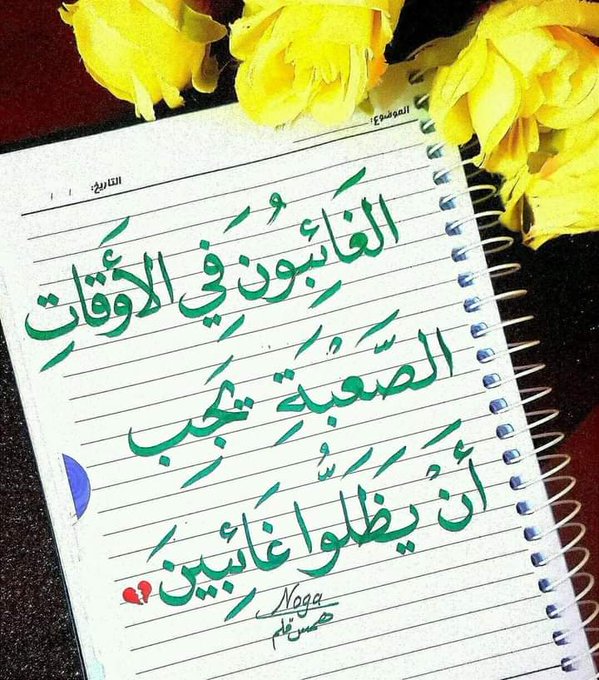 الموضوع:
التاريخ: / /
الغَائِبُونَ فِي الأَوَقَاتِ
الصَّعْبَةِ يَجِب
أَنْ يَظَلُّوا غَائِبِينَ
Noga
همس قلم